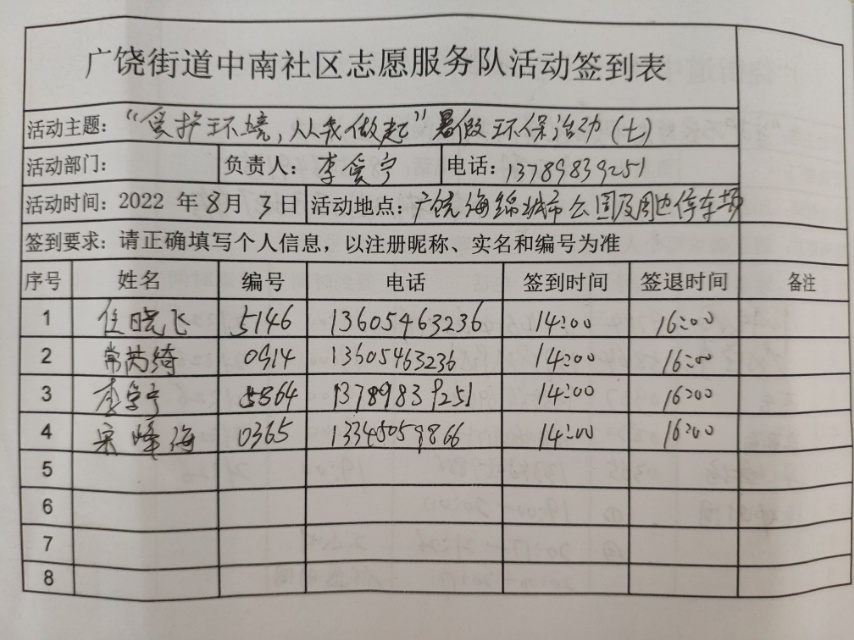 广饶街道中南社区志愿服务队活动签到表
活动主题：“爱护环境，从我做起”暑假环保活动(七)
活动部门： 负责人：李爱宁 电话：13789839251
活动时间：2022 年 8月 3日 活动地点：广饶海绵城市公园及周边停车场
签到要求：请正确填写个人信息，以注册昵称、实名和编号为准
序号 姓名 编号 电话 签到时间 签退时间 备注
1 任晓飞 5146 13605463236 14:00 16:00
2 常芮绮 0914 13605463236 14:00 16:00
3 李爱宁 5864 13789839251 14:00 16:00
4 宋峰海 0365 13345059866 14:00 16:00
5
6
7
8